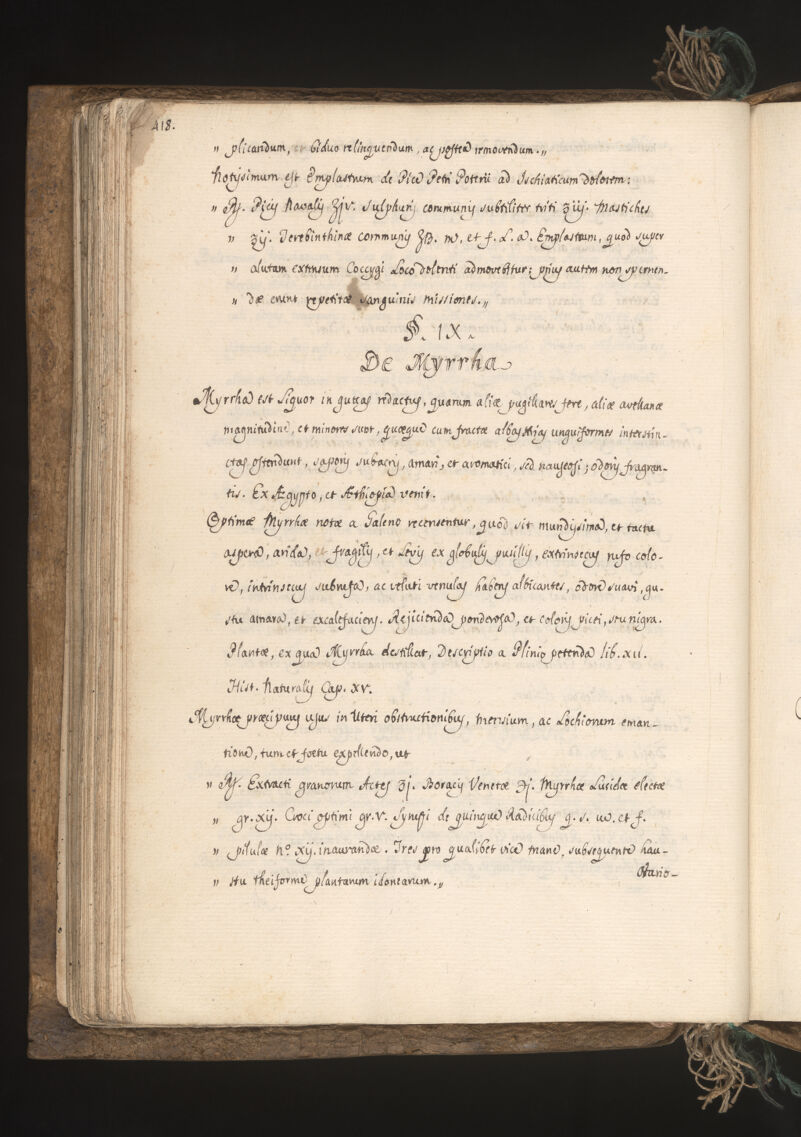 418.
„ plicandum, et biduo relinquendum, ac postea removendum.„
Notissimum est Emplastrum de Pice Petri Poterii ad Ischiaticum dolorem:
„ ℞. Picis Navalis ℥iv. Sulphuris communis subtiliter triti ʒiij. Mastiches
„ ʒij. Terebinthinæ communis ℥ß. m. et f. L. a. Emplastrum, quod super
„ alutam extensum Coccygi Loco dolenti admoveatur; prius autem non spernen-
„ dæ erunt repetitæ sanguinis missiones.„
§. IX.
De Myrrha
Myrrha est Liquor in guttas redactus, quarum aliæ pugillares fere, aliæ avellanæ
magnitudine, et minores sunt, quæque cum fractæ albas strias unguiformes interstin-
ctas ostendunt, saporis subacris, amari, et aromatici, sed nauseosi; odoris fragran-
tis. Ex Ægypto, et Æthiopia venit.
Optimæ Myrrhæ notæ a Galeno recensentur, quod sit mundissima, et tactu
aspera, arida, et fragilis, et Levis ex globulis pusillis, extrinsecus rufo colo-
re, intrinsecus subrufa, ac veluti venulas habens albicantes, odore suavi, gu-
stu amara, et excalefaciens. Rejicienda ponderosa, et coloris picei, seu nigra.
Plantæ, ex qua Myrrha destillat, Descriptio a Plinio petenda lib. xii.
Hist. Naturalis Cap. xv.
Myrrhæ præcipuus usus in Uteri obstructionibus, mensium, ac Lochiorum eman-
tione, tum et foetu expellendo, ut
„ ℞. Extracti granorum Actes ʒj. Boracis Venetæ ℈j. Myrrhæ Lucidæ electæ
„ gr. xij. Croci optimi gr. v. Syrupi de quinque Radicibus q. s. m. et f.
„ pilulæ nº xij. inaurandæ. Tres pro qualibet vice mane, subsequente hau-
„ stu theiforme plantarum idonearum.„